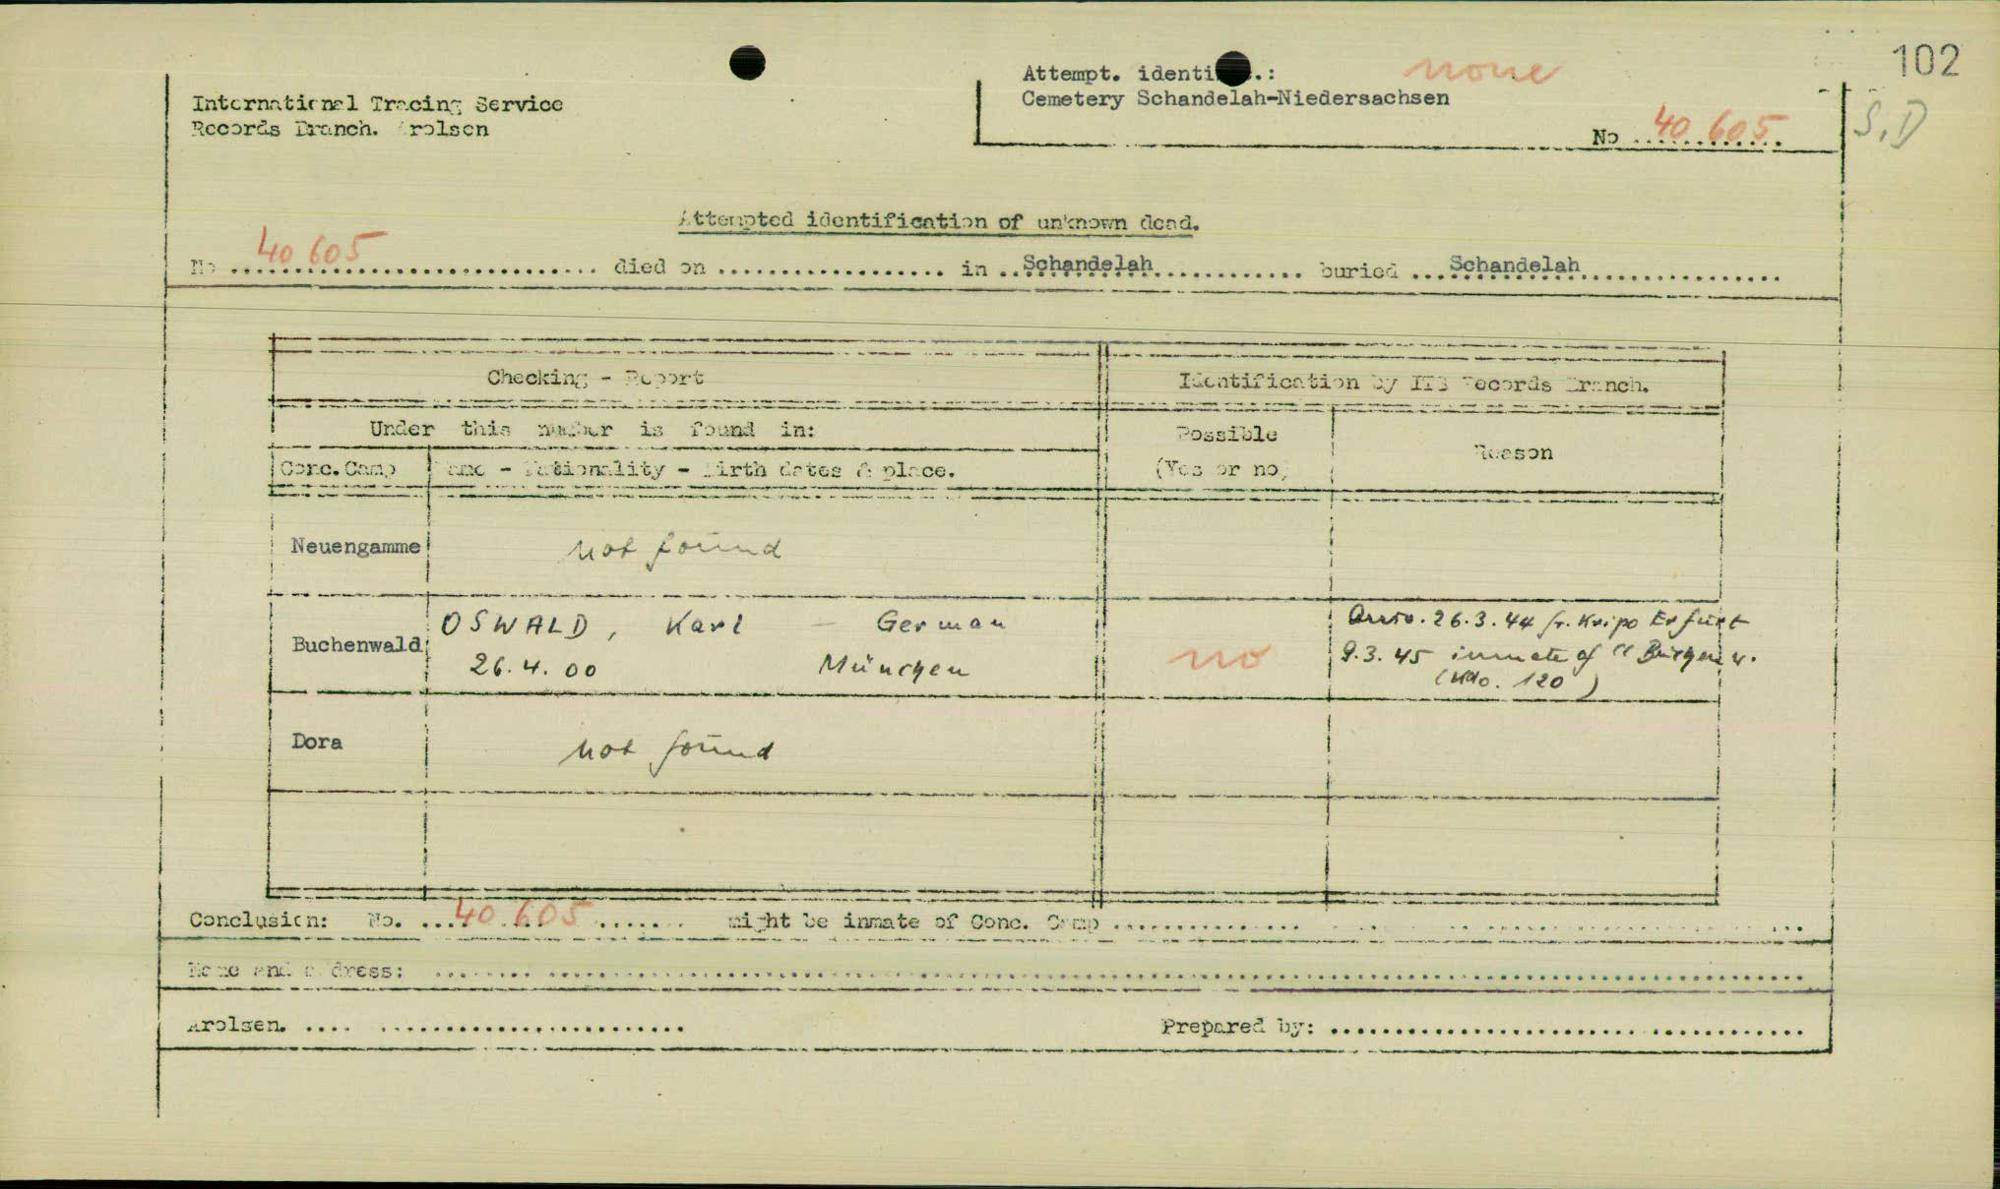 102
Attempt. identi...: none
Cemetery Schandelah-Niedersachsen
No 40 605
S.D
International Tracing Service
Records Branch. Arolsen
Attempted identification of unknown dead.
No 40 605 died on ........ in Schandelah buried Schandelah
Checking - Report
Identification by ITS Records Branch.
Under this number is found in:
Possible
(Yes or no)
Reason
Conc. Camp
Name - Nationality - Birth dates & place.
Neuengamme
not found
Buchenwald
OSWALD, Karl - German
26.4.00 München
no
26.3.44 fr. Kripo Erfurt
9.3.45 inmate of "
(Kdo. 120)
Dora
not found
Conclusion: No. 40 605 might be inmate of Conc. Camp
Name and address:
Arolsen.
Prepared by: